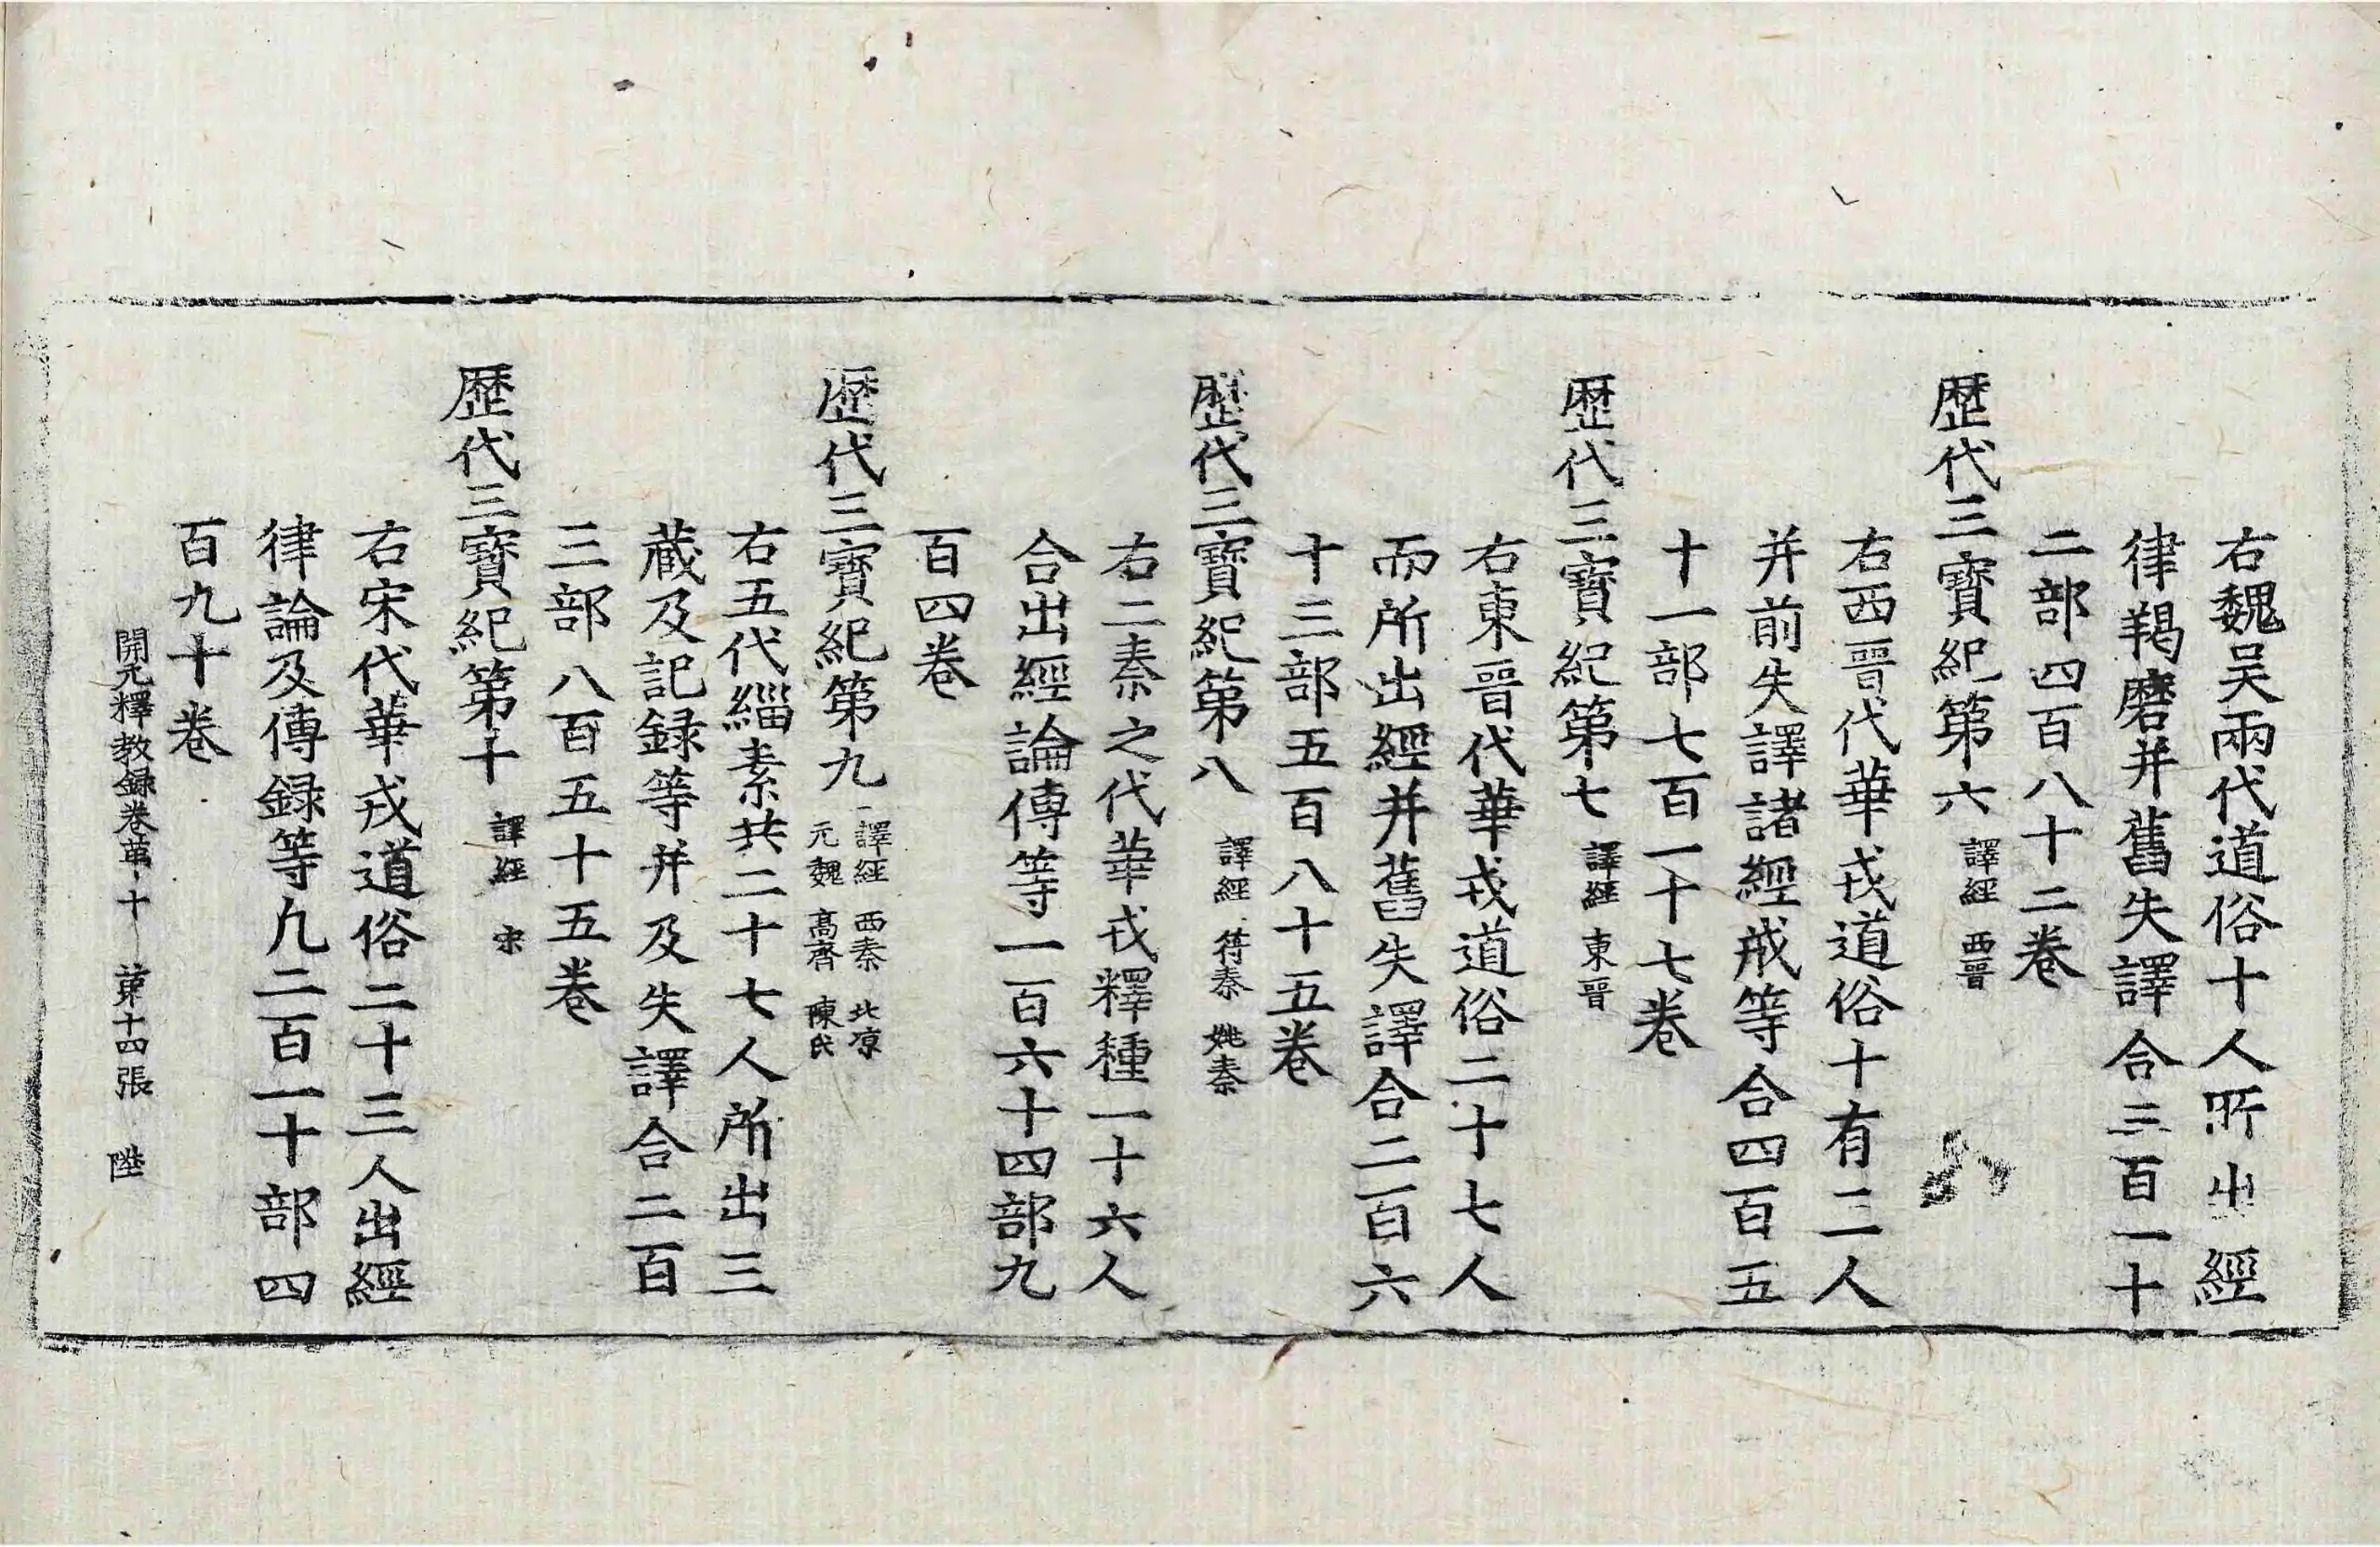 右魏吴兩代道俗十人所出經
律羯磨并舊失譯合三百一十
二部四百八十二卷
歷代三寶紀第六 譯經 西晉
右西晉代華戎道俗十有二人
并前失譯諸經戒等合四百五
十一部七百一十七卷
歷代三寶紀第七 譯經 東晉
右東晉代華戎道俗二十七人
而所出經并舊失譯合二百六
十三部五百八十五卷
歷代三寶紀第八 譯經 符秦 姚秦
右二秦之代華戎釋種一十六人
合出經論傳等一百六十四部九
百四卷
歷代三寶紀第九 譯經 西秦 北凉
元魏 高齊 陳氏
右五代緇素共二十七人所出三
藏及記録等并及失譯合二百
三部八百五十五卷
歷代三寶紀第十 譯經 宋
右宋代華戎道俗二十三人出經
律論及傳録等凡二百一十部四
百九十卷
開元釋教録卷第十 第十四張 陞